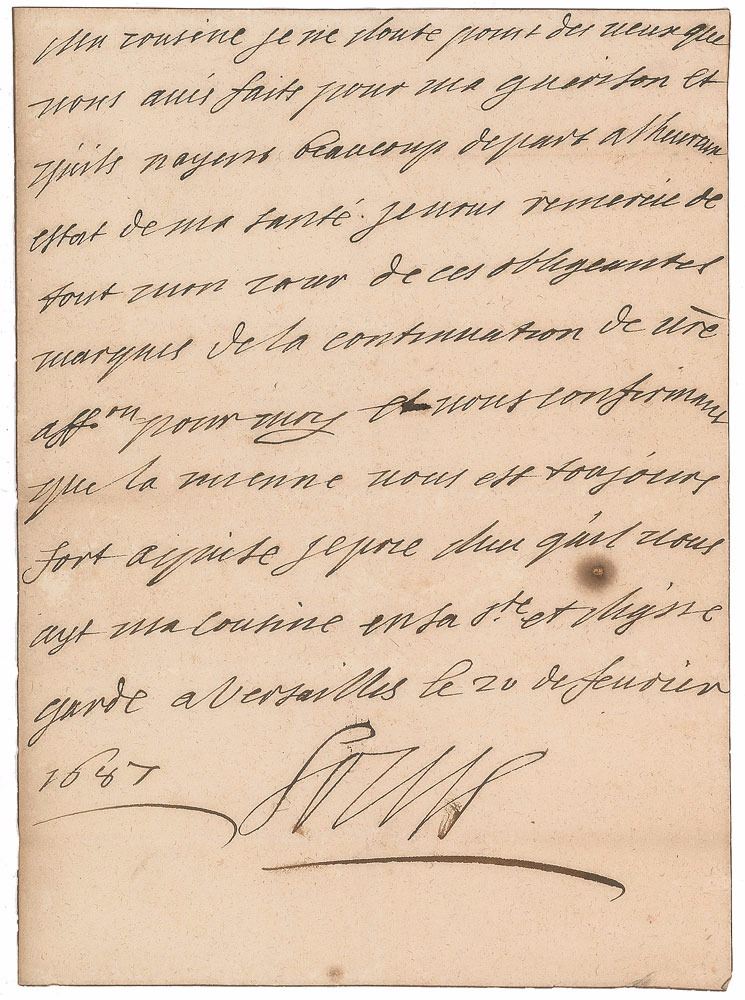 Ma cousine je ne doute point des veux que
vous avés faits pour ma guerison et
quils nayent beaucoup de part a lheureux
estat de ma santé. je vous remercie de
tout mon cœur de ces obligeantes
marques de la continuation de vre
affon pour moy et vous confirmant
que la mienne vous est toujours
fort aquise je prie dieu quil vous
ayt ma cousine en sa ste et digne
garde a Versailles le 20 de fevrier
1687 Louis